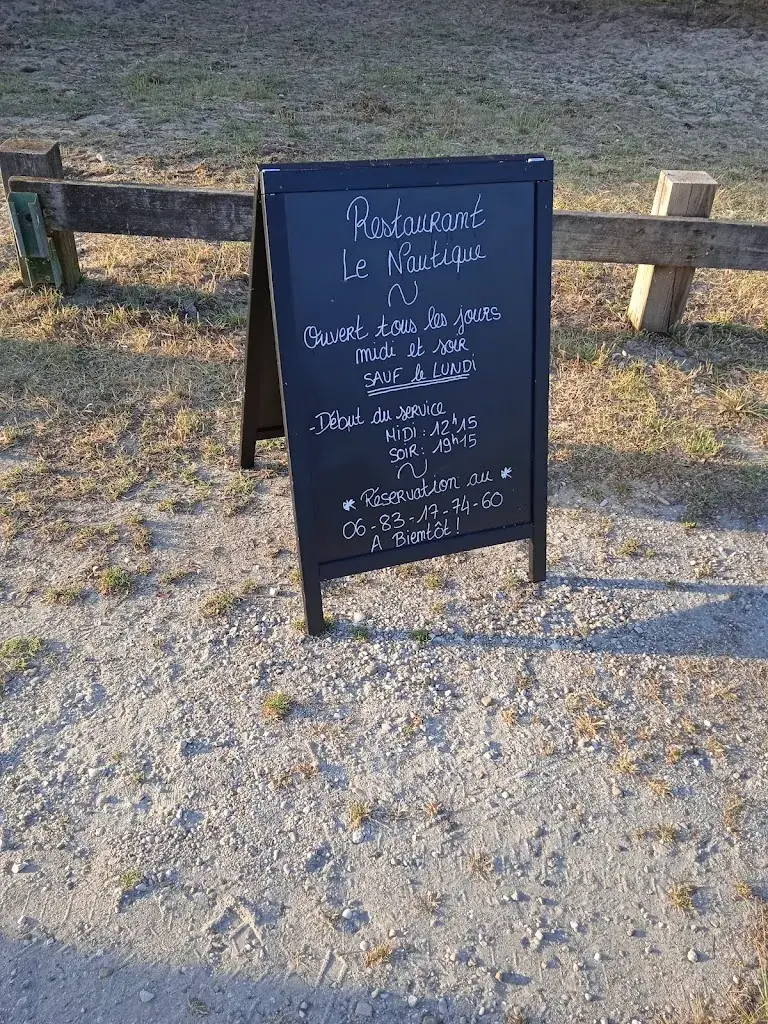 Restaurant
Le Nautique
Ouvert tous les jours
midi et soir
SAUF le LUNDI
-Début du service
MIDI : 12h15
SOIR : 19h15
Réservation au
06-83-17-74-60
A Bientôt !